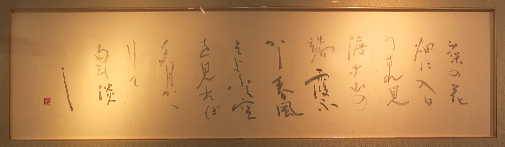 菜の花
畑に入日
うすれ見
渡す山の
端霞ふ
かし春風
そよふく空
を見れば
夕月かゝ
りて
淡
し